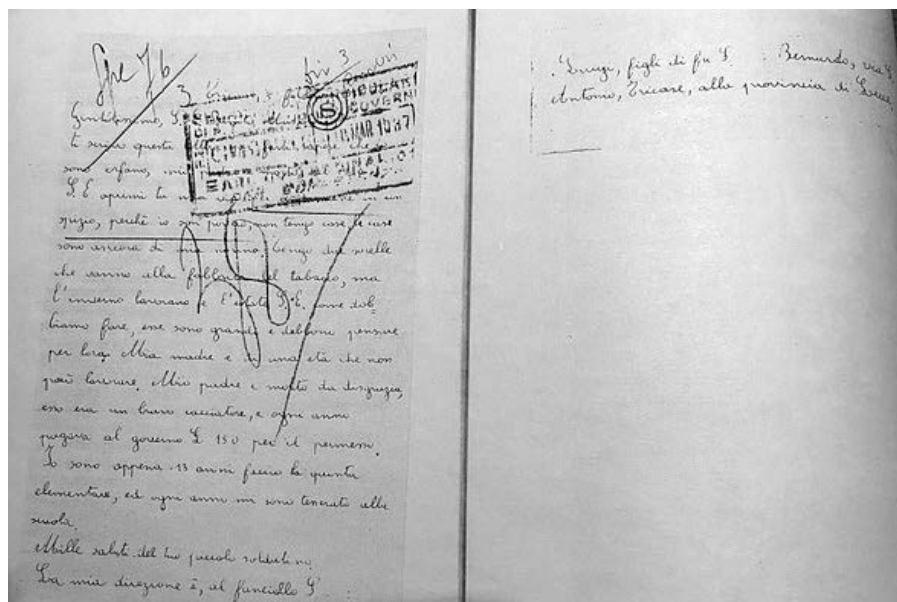 Spe 76
Div 3
Gentilissimo, S.
ti scrivo questa
sono orfano,
S. E. aprimi la in un
spizio, perchè io son povero, non tengo case, le case
sono ancora di mia nonna. Tengo due sorelle
che vanno alla fabbrica del tabacco, ma
l'inverno lavorano e l'estate S. E. come dob-
biamo fare, esse sono grandi e debbono pensare
per loro. Mia madre è in una età che non
può lavorare. Mio padre è morto da disgrazia,
esso era un bravo cacciatore, e ogni anno
pagava al governo L 150 per il permesso.
Io sono appena 13 anni faccio la quinta
elementare, ed ogni anno mi sono tesserato alla
scuola.
Mille saluti del tuo piccolo soldatino.
La mia direzione è, al fanciullo S :
MAR 1937
Luigi, figli di fu S. Bernardo, via S.
Antonio, Tricase, alla provincia di Lecce.